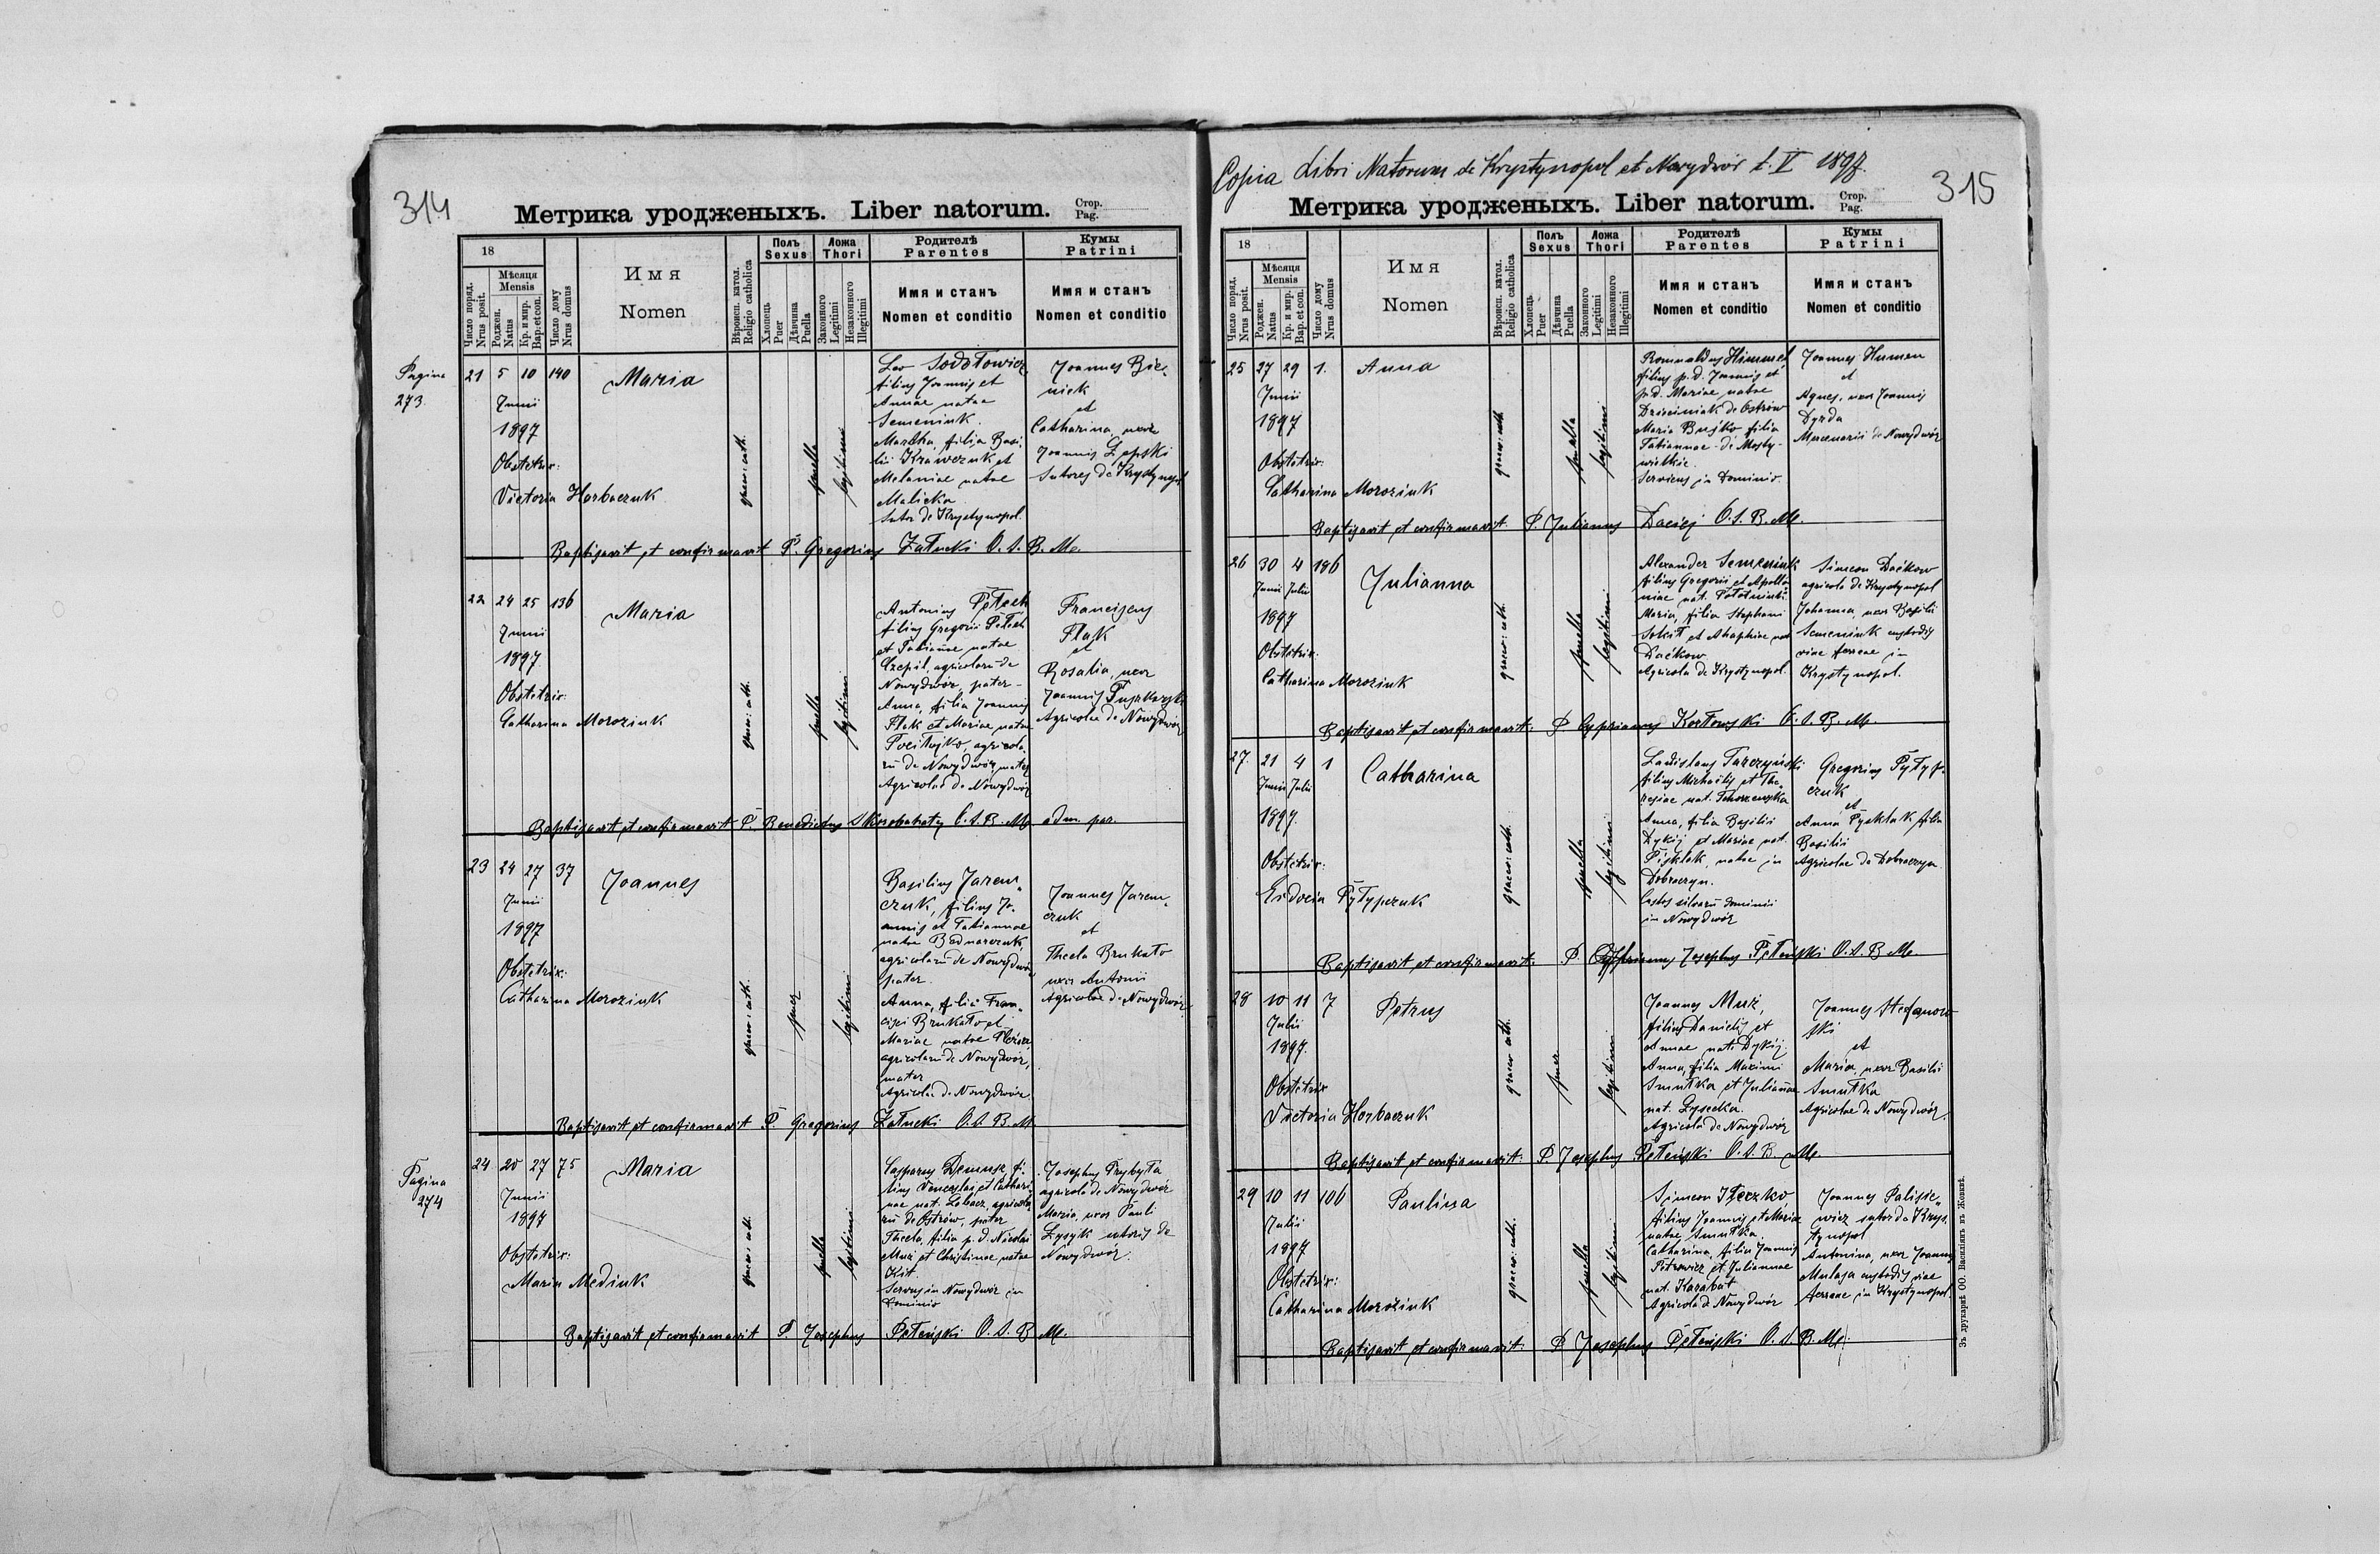 314
Метрика уродженыхъ. Liber natorum.
Стор.
Pag.
18
Число поряд.
Nrus posit.
Мѣсяця
Mensis
Роджен.
Natus
Кр. и мир.
Bap. et con.
Число дому
Nrus domus
Имя
Nomen
Вѣроисп. катол.
Religio catholica
Полъ
Sexus
Хлопець
Puer
Дѣвчина
Puella
Ложа
Thori
Законного
Legitimi
Незаконного
Illegitimi
Родителѣ
Parentes
Имя и станъ
Nomen et conditio
Кумы
Patrini
Имя и станъ
Nomen et conditio
Pagina
273.
21 5 10 140
Junii
1897
Obstetrix:
Victoria Horbaczuk
Maria
graec: cath.
puella
legitimi
Leo
filius Joannis et
Annae natae
Semeniuk.
Martha, filia Basi,
lii Krawczuk et
Melaniae natae
Malicka
Sutor de Krystynopol.
Joannes
et
Catharina, uxor
Joannis
Sutores de Krystynopol
Baptisavit et confirmavit P. Gregorius Załucki O. S. B. M.
22 24 25 136
Junii
1897
Obstetrix:
Catharina Moroziuk
Maria
graec: cath.
puella
legitimi
Antonius
filius Gregorii
et Tatianne natae
Czepil, agricolarū de
Nowydwór, pater-
Anna, filia Joannis
Flak et Mariae natae
agricola,
rū de Nowydwór, mater
Agricolae de Nowydwór
Franciscus
Flak
et
Rosalia, uxor
Joannis
Agricolae de Nowydwór
Baptisavit et confirmavit P. Benedictus O. S. B. M. adm. par.
23 24 27 37
Junii
1897
Obstetrix:
Catharina Moroziuk
Joannes
graec: cath.
puer
legitimi
Basilius Jarem„
czuk, filius Jo„
annis et Tatiannae
natae Bednarczuk,
agricolarū de Nowydwór
pater.
Anna, filia Fran„
cisci Brukało et
Mariae natae
agricolarū de Nowydwór,
mater
Agricolae de Nowydwór.
Joannes Jarem„
czuk
et
Thecla Brukało
uxor Antonii
Agricolae de Nowydwór
Baptisavit et confirmavit P. Gregorius Załucki O. S. B. M.
Pagina
274
24 20 27 75
Junii
1897
Obstetrix:
Maria Mediuk
Maria
graec: cath.
puella
legitimi
Casparus fi„
lius Venceslai et Cathari
nae nat. agricola
rū de Ostrów, pater
Thecla, filia p. d. Nicolai
et Christinae natae
Kit.
Servus in Nowydwór in
Dominio
Josephus Przybyła
agricola de Nowydwór
Maria, uxor Pauli
Łysyk sutoris de
Nowydwór.
Baptisavit et confirmavit P. Josephus O. S. B. M.
Copia Libri Natorum de Krystynopol et Nowydwór t. V 1897.
315
Метрика уродженыхъ. Liber natorum.
Стор.
Pag.
18
Число поряд.
Nrus posit.
Мѣсяця
Mensis
Роджен.
Natus
Кр. и мир.
Bap. et con.
Число дому
Nrus domus
Имя
Nomen
Вѣроисп. катол.
Religio catholica
Полъ
Sexus
Хлопець
Puer
Дѣвчина
Puella
Ложа
Thori
Законного
Legitimi
Незаконного
Illegitimi
Родителѣ
Parentes
Имя и станъ
Nomen et conditio
Кумы
Patrini
Имя и станъ
Nomen et conditio
25 27 29 1.
Junii
1897
Obstetrix:
Catharina Moroziuk
Anna
graec: cath.
puella
legitimi
Romualdus Himmel
filius p. d. Joannis et
p. d. Mariae natae
de Ostrów
Maria Buśko filia
Tatiannae de Mosty-
wielkie.
Serviens in Dominio.
Joannes Humen
et
Agnes, uxor Joannis
Dyrda
Mercenarii de Nowydwór
Baptisavit et confirmavit. P. Julianus Daciej O. S. B. M.
26 30 4 186
Junii Julii
1897
Obstetrix:
Catharina Moroziuk
Julianna
graec: cath.
puella
legitimi
Alexander Semeniuk
filius Gregorii et Apollo
niae nat.
Maria, filia Stephani
et nat
Daćkow
Agricola de Krystynopol.
Simeon Daćkow
agricola de Krystynopol
Johanna, uxor Basilii
Semeniuk custodis
viae ferreae in
Krystynopol.
Baptisavit et confirmavit: P. Cyprianus Kozłowski O. S. B. M.
27. 21 4 1
Junii Julii
1897.
Obstetrix:
Eudocia Pyłypczuk
Catharina
graec: cath.
puella
legitimi
Ladislaus Tarczyński
filius Michaëlis et The„
resiae nat.
Anna, filia Basilii
Dykij et Mariae nat.
natae in
Dobraczyn.
Custos silvarū dominii
in Nowydwór
Gregorius Pyłyp„
czuk
et
Anna filia
Basilii
Agricolae de Dobraczyn
Baptisavit et confirmavit. P. Josephus O. S. B. M.
28 10 11 7
Julii
1897.
Obstetrix
Victoria Horbaczuk
Petrus
graec: cath.
puer
legitimi
Joannes Muż,
filius Danielis et
Annae nat. Dykij.
Anna, filia Maximi
Smutka et Juliannae
nat. Łysecka.
Agricola de Nowydwór
Joannes Stefanow
ski
et
Maria, uxor Basilii
Smutka
Agricolae de Nowydwór.
Baptisavit et confirmavit. P. Josephus O. S. B. M.
29 10 11 106
Julii
1897
Obstetrix:
Catharina Moroziuk
Paulina
graec: cath.
puella
legitimi
Simeon
filius Joannis et Mariae
natae Smutka,
Catharina, filia Joannis
Petrowicz et Juliannae
nat. Karabat
Agricola de Nowydwór
Joannes Palisie„
wicz sutor de Krys„
tynopol
Antonina, uxor Joannis
Mulasa custodis viae
ferreae in Krystynopol.
Baptisavit et confirmavit. P. Josephus O. S. B. M.
Зъ друкарнѣ ОО. Василіянъ въ Жовквѣ.